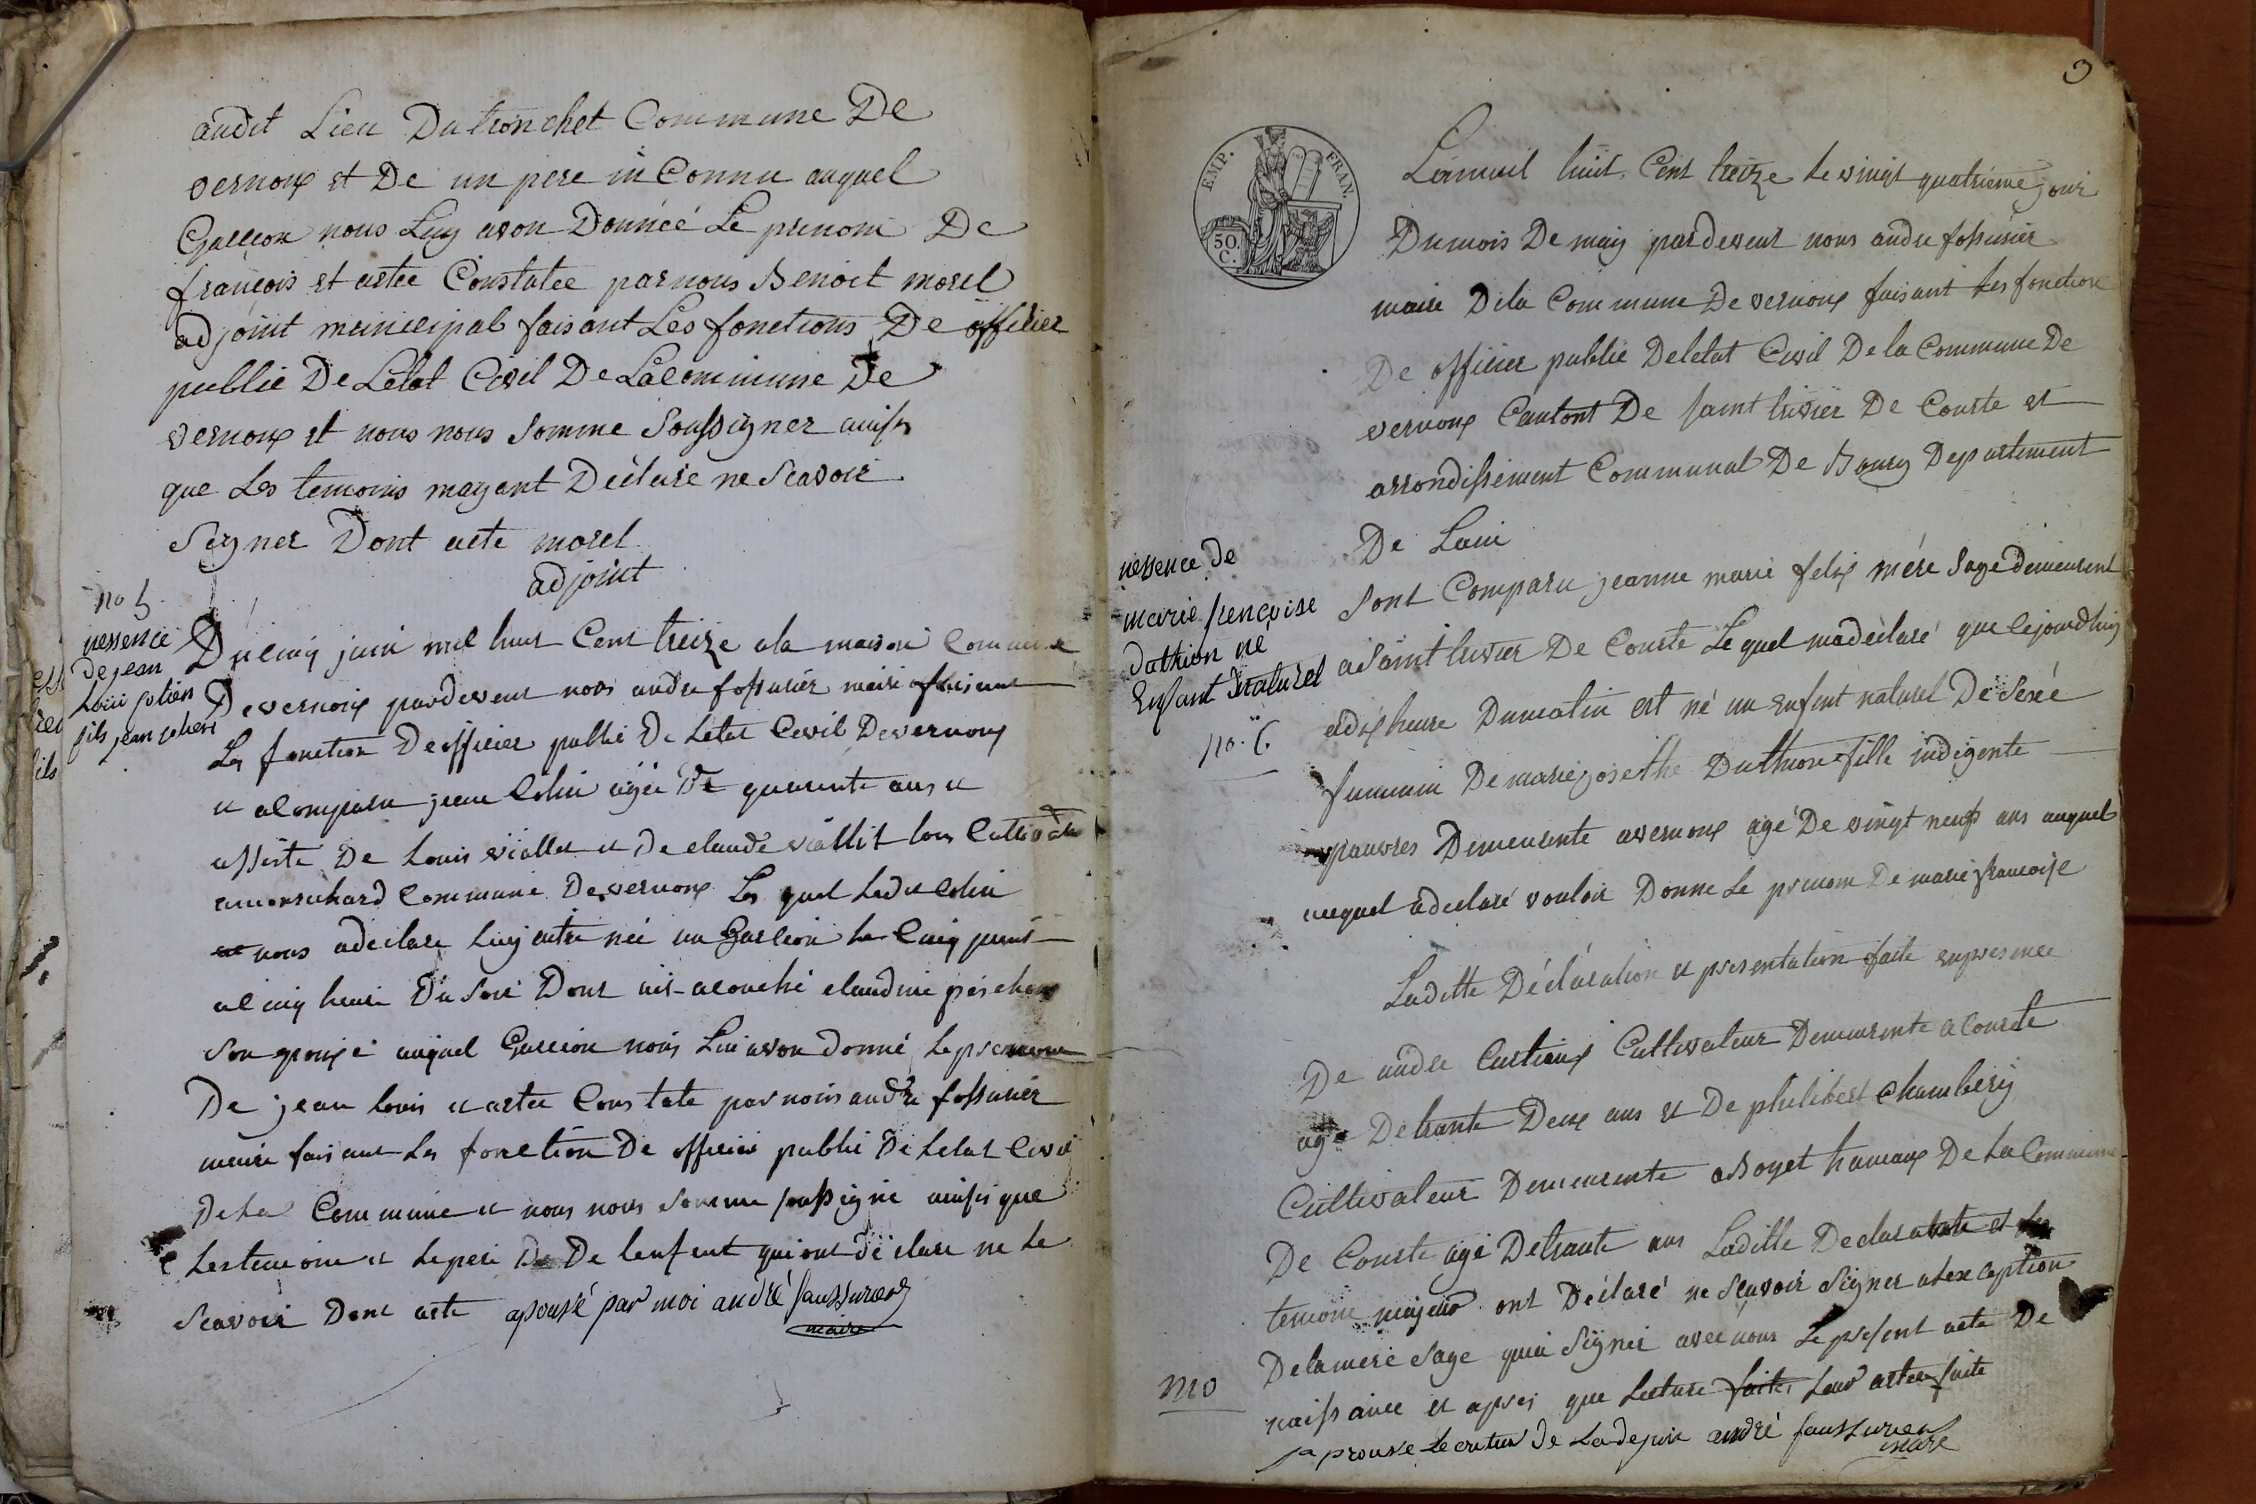 audit Lieu Dutronchet Commune De
vernoux et De un pere in Connu auquel
Garcon nous Luy avon Donnéé Le prenom De
françois et astee Constatee parnous Benoit morel
adjoint municipal faisant Les fonctions De officier
public De Létat Civil De Lacommune De
vernoux et nous nous Somme Soussigner ainsy
que Les temoins mayant Déclaré ne Scavoir
Signer Dont acte morel
adjoint
no 5
nessence
de jean
Loui
fils jean
Du cinq juin mil huit Cent treize ala maison Commune
De vernoux pardevent nous andre fossurier maire faisant
Les fonction De officier public De Letat Civil De vernoux
et a Comparu jean Colin agée De quarente ans et
assisté De Louis viallet et De claude viallet tous
Commune De vernoux Les quel Ledit Colin
nous adeclare Luy aitre néé un Garcion Le Cinq juin
a Cinq heure Du Soir Dont ait acouché claudine
Son epouse auquel Garcion nous Lui avon donné Le prenom
De jean Louis et astee Constate par nous andré fossurier
maire faisant Les fonction De officier public De Letat Civil
De La Commune et nous nous Somme soussigné ainsi que
Les temoin et Le pere De Lenfent qui ont déclare ne Le
Scavoir Dont acte aprouvé par moi andré faussurier
maire
9
EMP. FRAN.
50.
C.
Lanmil huit Cent treize Le vingt quatrieme jour
Dumois De may pardevent nous andre fossurier
maire Dela Commune De vernoux faisant Les fonction
De officier public Deletat Civil De la Commune De
vernoux Cantont De saint trivier De Courte et
arrondissement Communal De Bourg Departement
De Lain
nessence De
marie françoise
duthion né
Enfant Naturel
no. 6
Sont Comparu jeanne marie felix mére Sage demeurent
a Saint trivier De Courte Le quel madéclaré que cejourdhuy
adix heure Dumatin est né un Enfent naturel De Sexé
feminin De marie josethe Duthion fille indigente
pauvres Demeurente avernoux agé De vingt neuf ans auquel
auquel adeclaré vouloir Donne Le prenom De marie francoise
Laditte Déclaration et presentation faite enpresence
De andre Castieux Cultivateur Demeurente a Courte
age Detrante Deux ans et De philibert Chambery
Cultivateur Demeurente aBoyet hameaux De La Commune
De Courte agé Detrante ans Laditte Declarante et Les
temoin majeur ont Déclaré ne Scavoir Signer alexception
Delamere Sage quia Signer avec nous Le present acte De
naissance et apres que Lecture faite Leur astee faite
mo
japrouve Lecriture de Ladejoin andré faussurier
maire